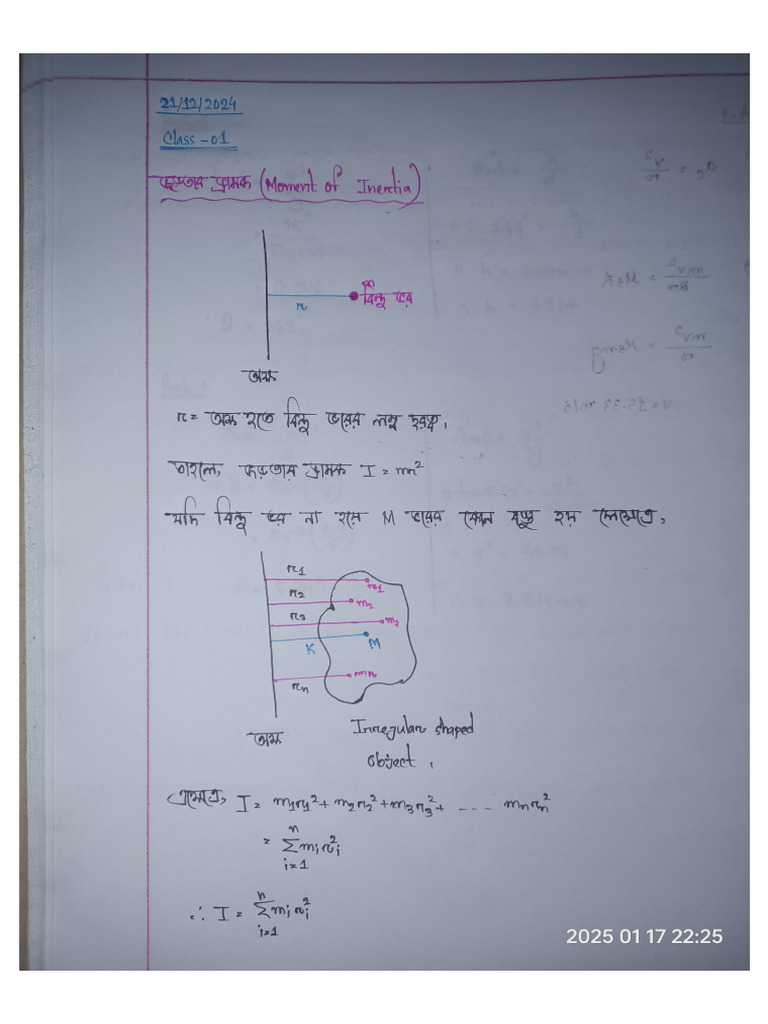 21/12/2024
Class-01
জড়তার ভ্রামক (Moment of Inertia)
m
বিন্দু ভর
r
অক্ষ
r = অক্ষ হতে বিন্দু ভরের লম্ব দূরত্ব,
তাহলে, জড়তার ভ্রামক I = mr²
যদি বিন্দু ভর না হয়ে M ভরের কোন বস্তু হয় সেক্ষেত্রে,
r₁
m₁
r₂
m₂
r₃
m₃
K
M
mn
rₙ
অক্ষ
Irregular shaped
object.
এক্ষেত্রে, I = m₁r₁² + m₂r₂² + m₃r₃² + .... mₙrₙ²
= n∑i=1 mᵢrᵢ²
∴ I = n∑i=1 mᵢrᵢ²
2025 01 17 22:25